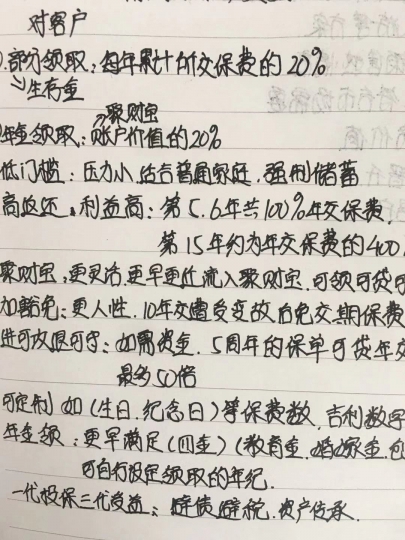 对客户
部分领取：每年累计所交保费的20%
生存金
聚财宝
年金领取：账户价值的20%
低门槛：压力小，适合普通家庭，强制储蓄
高返还，利益高：第5.6年共100%年交保费.
第15年约为年交保费的400
聚财宝，更灵活，更早更快流入聚财宝，可领可贷可
加豁免：更人性，10年交遭受变故后免交期保费
进可攻退可守：如需资金，5周年的保单可贷年交
最多50倍
可定制 如（生日.纪念日）等保费数，吉利数字
年金领：更早满足（四金）（教育金，婚嫁金，
可自行设定领取的年纪.
一代投保三代受益：避债避税.资产传承.